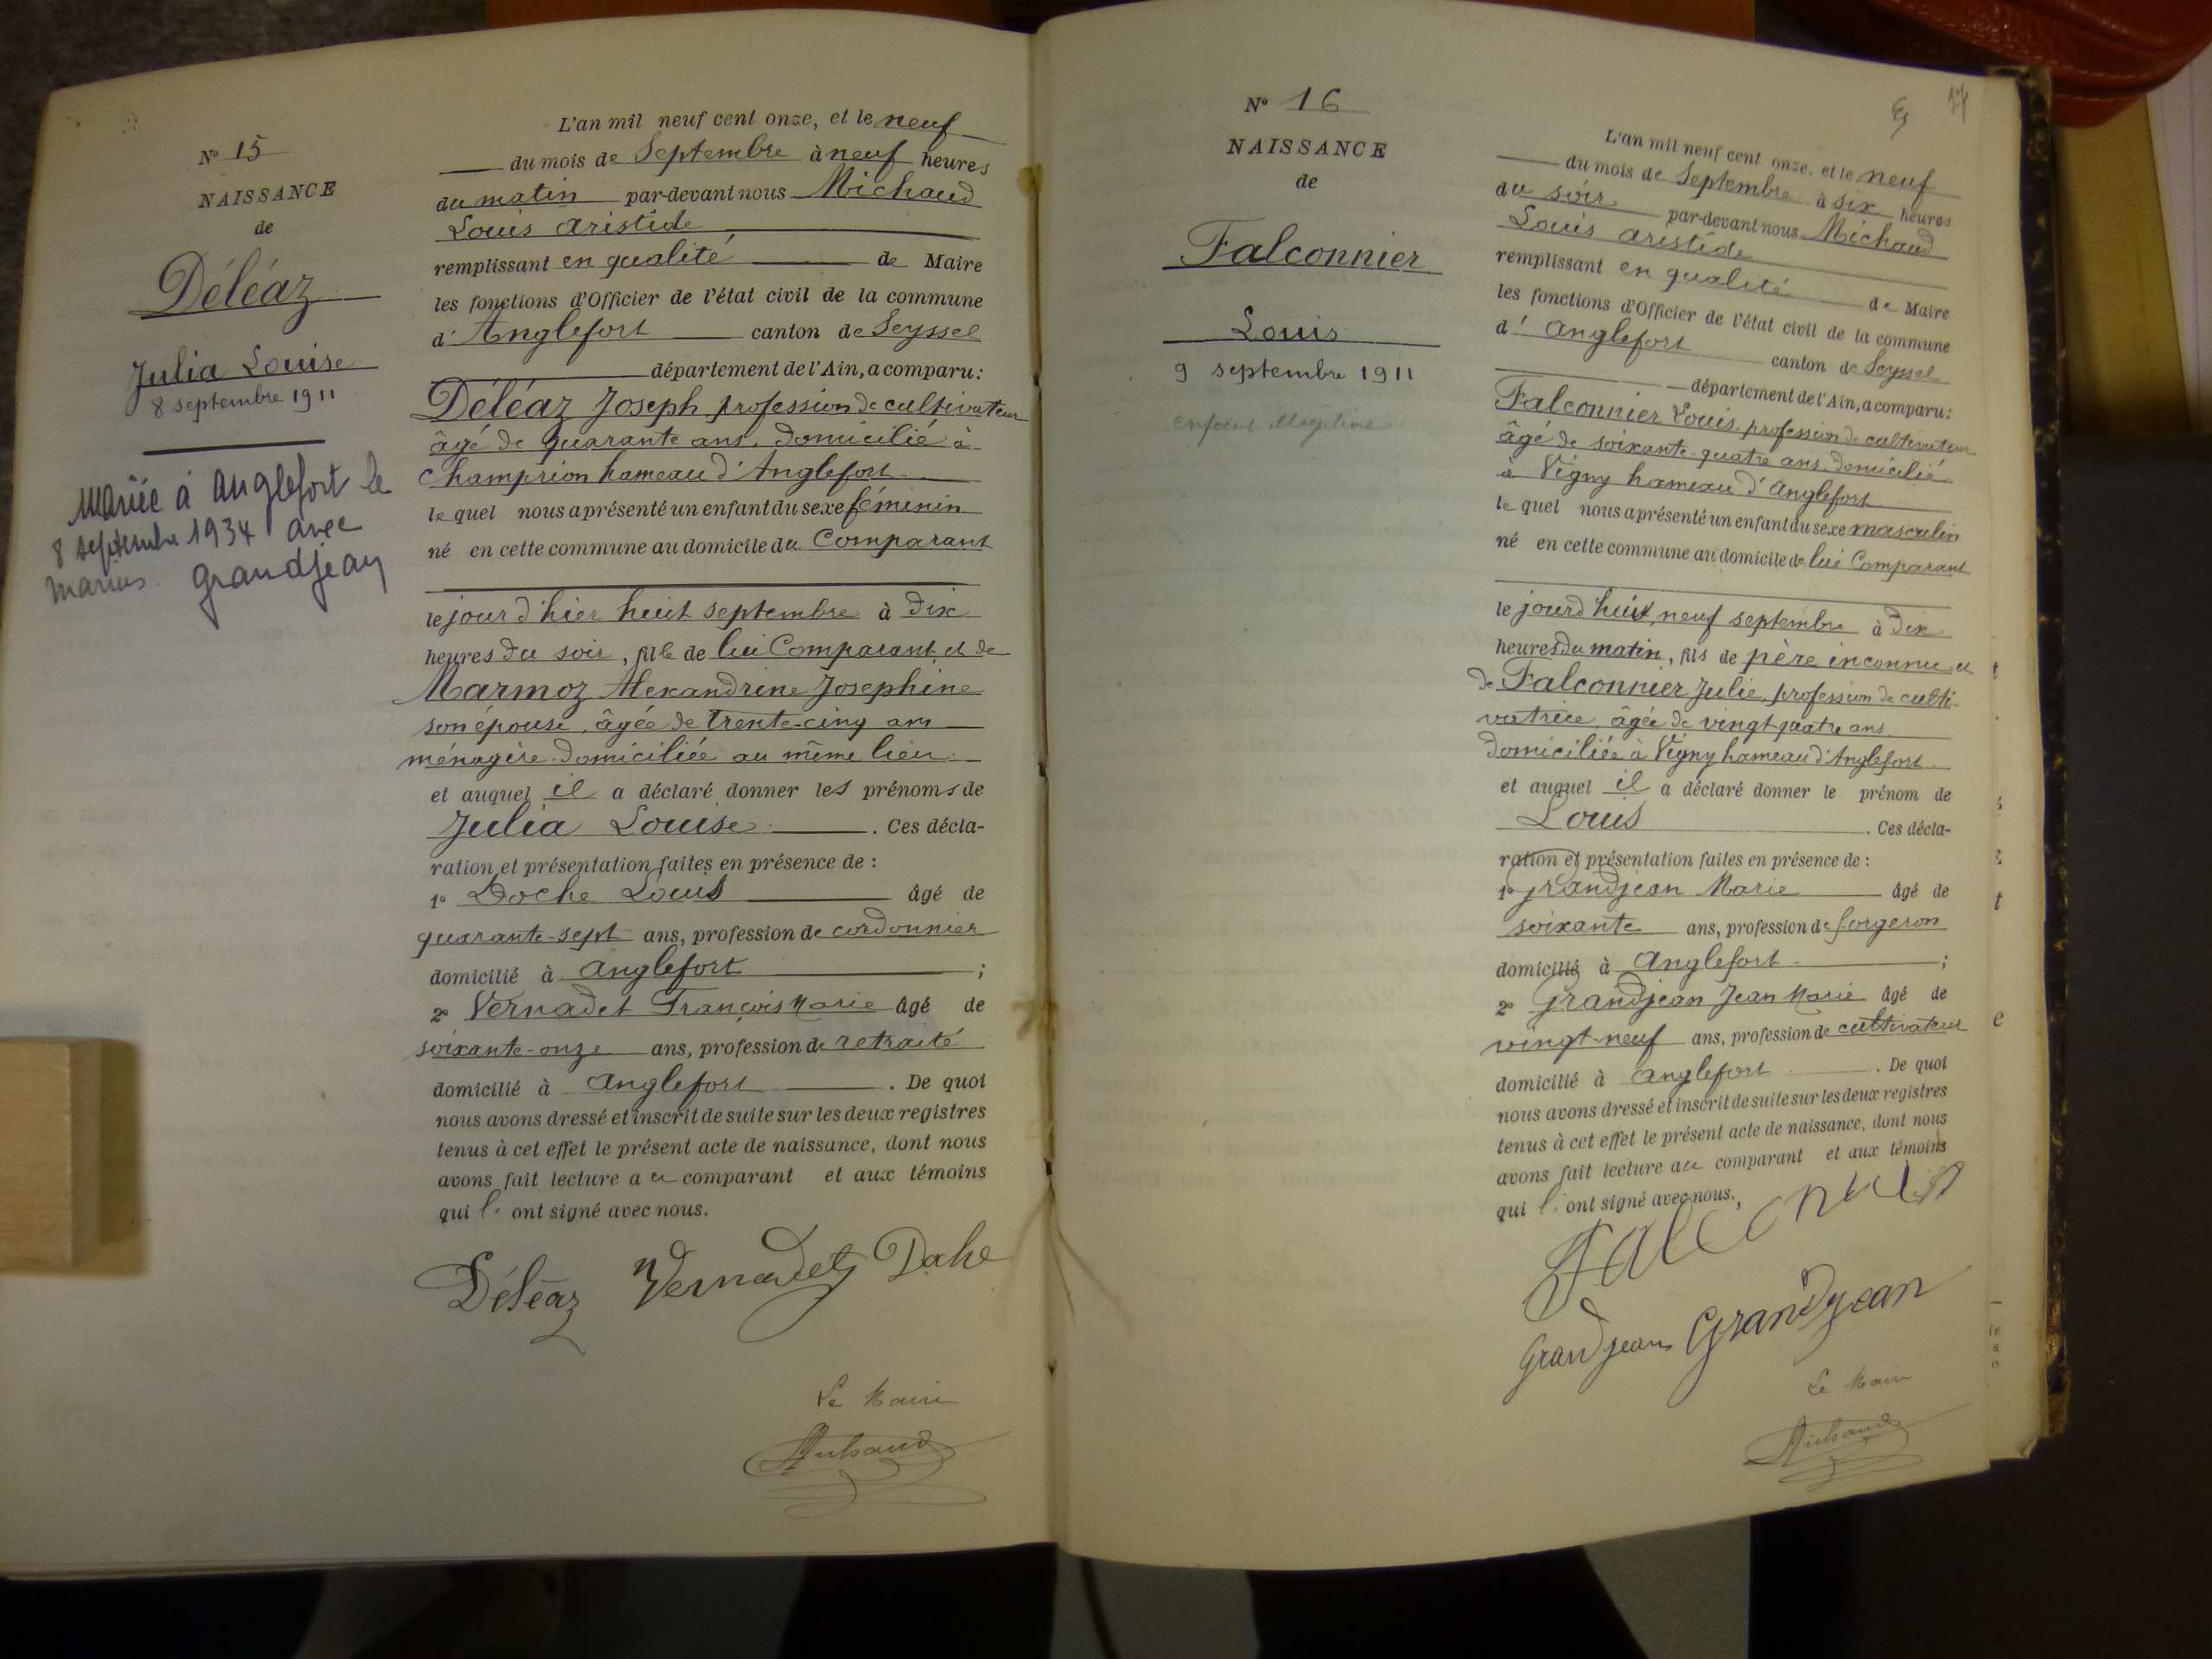 N° 15
NAISSANCE
de
Déléaz
Julia Louise
8 septembre 1911
Mariée à Anglefort le
8 septembre 1934 avec
Marius Grandjean
L'an mil neuf cent onze, et le neuf
du mois de Septembre à neuf heures
du matin par-devant nous Michaud
Louis Aristide
remplissant en qualité de Maire
les fonctions d'Officier de l'état civil de la commune
d' Anglefort canton de Seyssel
département de l'Ain, a comparu :
Déléaz Joseph profession de cultivateur
âgé de quarante ans, domicilié à
Champrion hameau d'Anglefort
le quel nous a présenté un enfant du sexe féminin
né en cette commune au domicile du Comparant
le jour d'hier huit septembre à dix
heures du soir, fille de lui Comparant et de
Marmoz Alexandrine Josephine
son épouse, âgée de trente-cinq ans
ménagère domiciliée au même lieu
et auquel il a déclaré donner les prénoms de
Julia Louise. Ces décla-
ration et présentation faites en présence de :
1° Doche Louis âgé de
quarante-sept ans, profession de cordonnier
domicilié à Anglefort ;
2° Vernadet François Marie âgé de
soixante-onze ans, profession de retraité
domicilié à Anglefort. De quoi
nous avons dressé et inscrit de suite sur les deux registres
tenus à cet effet le présent acte de naissance, dont nous
avons fait lecture au comparant et aux témoins
qui l' ont signé avec nous.
Déléaz Vernadet Doche
Le Maire
Michaud
N° 16
NAISSANCE
de
Falconnier
Louis
9 septembre 1911
enfant illégitime
L'an mil neuf cent onze, et le neuf
du mois de Septembre à six heures
du soir par-devant nous Michaud
Louis Aristide
remplissant en qualité de Maire
les fonctions d'Officier de l'état civil de la commune
d' Anglefort canton de Seyssel
département de l'Ain, a comparu :
Falconnier Louis, profession de cultivateur
âgé de soixante-quatre ans, domicilié
à Vigny hameau d'Anglefort
le quel nous a présenté un enfant du sexe masculin
né en cette commune au domicile de lui Comparant
le jourd'huit, neuf septembre à dix
heures du matin, fils de père inconnu et
de Falconnier Julie, profession de culti-
vatrice, âgée de vingt-quatre ans
domiciliée à Vigny hameau d'Anglefort
et auquel il a déclaré donner le prénom de
Louis. Ces décla-
ration et présentation faites en présence de :
1° Grandjean Marie âgé de
soixante ans, profession de forgeron
domicilié à Anglefort ;
2° Grandjean Jean Marie âgé de
vingt-neuf ans, profession de cultivateur
domicilié à Anglefort. De quoi
nous avons dressé et inscrit de suite sur les deux registres
tenus à cet effet le présent acte de naissance, dont nous
avons fait lecture au comparant et aux témoins
qui l' ont signé avec nous.
Grandjean Grandjean
Le Maire
Michaud